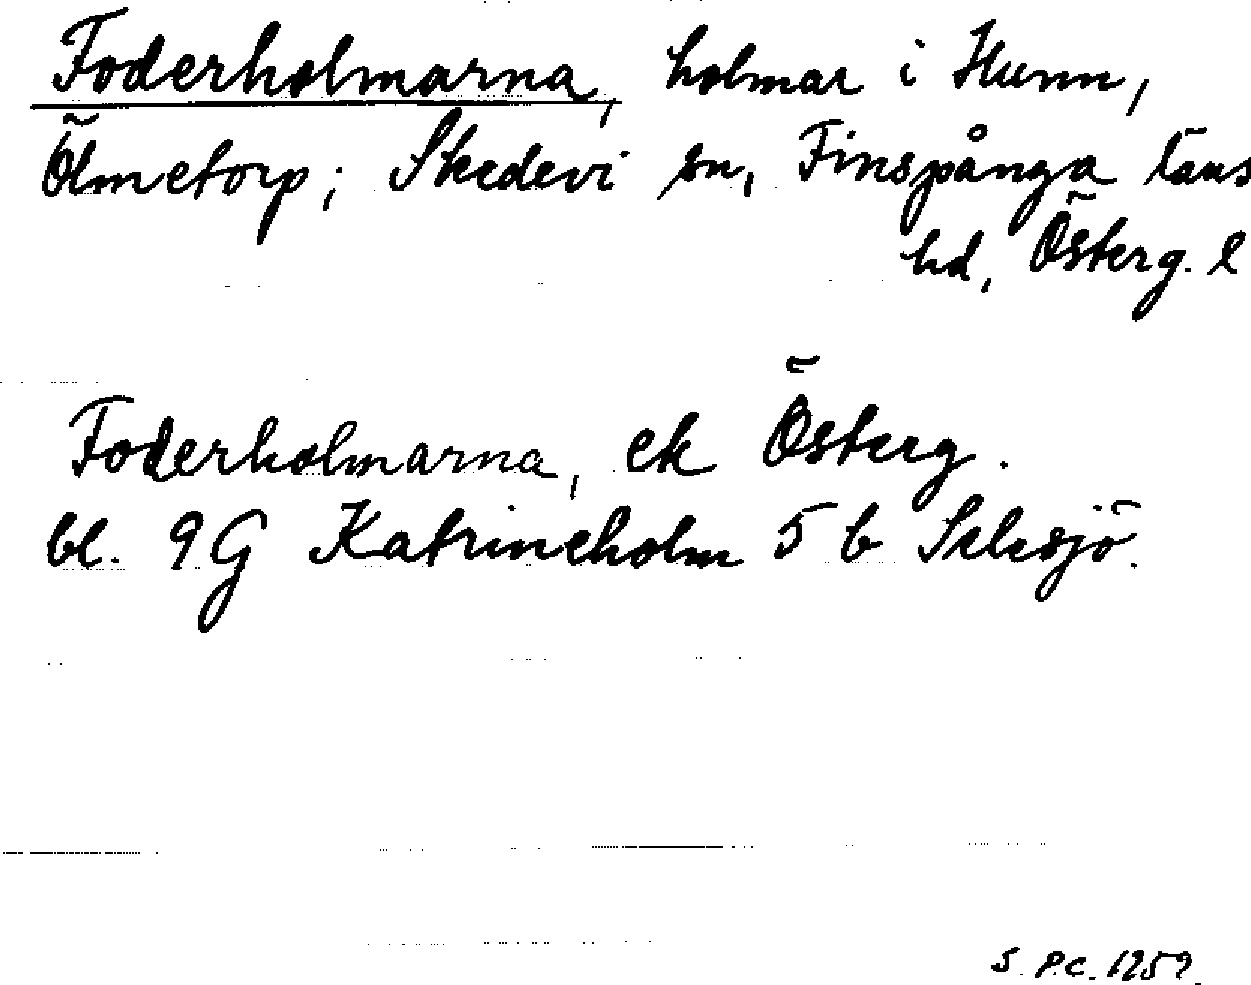 Foderholmarna, holmar i Hunn,
Ölmetorp; Skedevi sn, Finspånga läns
hd, Österg. l
Foderholmarna, ek Österg.
bl. 9G Katrineholm 5 b
S. P.C. 1959.